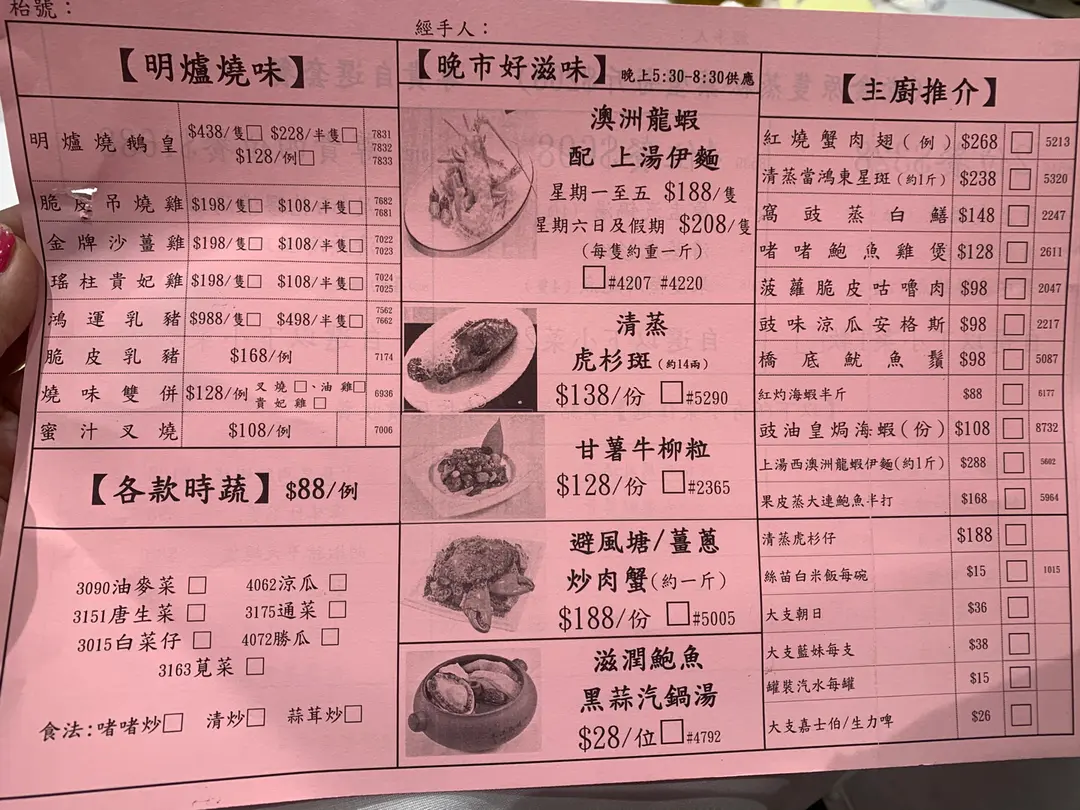 枱號：
經手人：
【明爐燒味】
明爐燒鵝皇 $438/隻□ $228/半隻□ $128/例□ 7831 7832 7833
脆皮吊燒雞 $198/隻□ $108/半隻□ 7682 7681
金牌沙薑雞 $198/隻□ $108/半隻□ 7022 7023
瑤柱貴妃雞 $198/隻□ $108/半隻□ 7024 7025
鴻運乳豬 $988/隻□ $498/半隻□ 7562 7662
脆皮乳豬 $168/例 7174
燒味雙併 $128/例 叉燒□、油雞□ 貴妃雞□ 6936
蜜汁叉燒 $108/例 7006
【各款時蔬】$88/例
3090油麥菜 □ 4062涼瓜 □
3151唐生菜 □ 3175通菜 □
3015白菜仔 □ 4072勝瓜 □
3163莧菜 □
食法:啫啫炒□ 清炒□ 蒜茸炒□
【晚市好滋味】晚上5:30-8:30供應
澳洲龍蝦
配 上湯伊麵
星期一至五 $188/隻
星期六日及假期 $208/隻
(每隻約重一斤)
□#4207 #4220
清蒸
虎杉斑(約14兩)
$138/份 □#5290
甘薯牛柳粒
$128/份 □#2365
避風塘/薑蔥
炒肉蟹(約一斤)
$188/份 □#5005
滋潤鮑魚
黑蒜汽鍋湯
$28/位□#4792
【主廚推介】
紅燒蟹肉翅(例) $268 □ 5213
清蒸當鴻東星斑(約1斤) $238 □ 5320
窩豉蒸白鱔 $148 □ 2247
啫啫鮑魚雞煲 $128 □ 2611
菠蘿脆皮咕嚕肉 $98 □ 2047
豉味涼瓜安格斯 $98 □ 2217
橋底魷魚鬚 $98 □ 5087
紅灼海蝦半斤 $88 □ 6177
豉油皇焗海蝦(份) $108 □ 8732
上湯西澳洲龍蝦伊麵(約1斤) $288 □ 5602
果皮蒸大連鮑魚半打 $168 □ 5964
清蒸虎杉仔 $188 □
絲苗白米飯每碗 $15 □ 1015
大支朝日 $36 □
大支藍妹每支 $38 □
罐裝汽水每罐 $15 □
大支嘉士伯/生力啤 $26 □